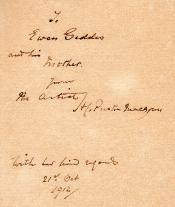 To
Ewan Geddes
and his
Mother.
from
the Artist
With her kind regards
21st Oct
1914